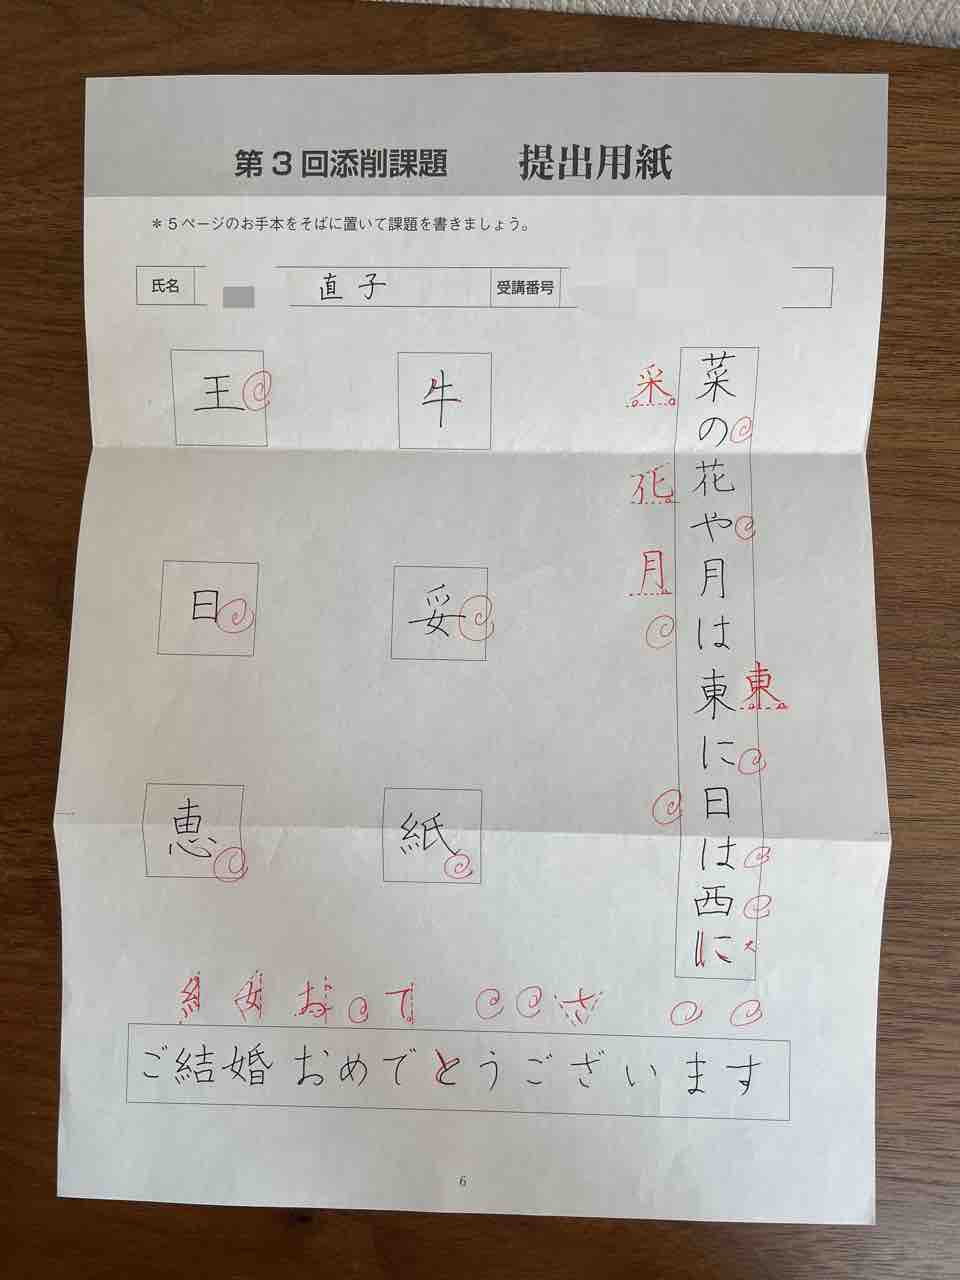 第3回添削課題 提出用紙
＊5ページのお手本をそばに置いて課題を書きましょう。
氏名 直子 受講番号
菜の花や月は東に日は西に
采
化
月
東
大
牛
妥
紙
王
日
恵
糸 女 お て さ
ご結婚おめでとうございます
6